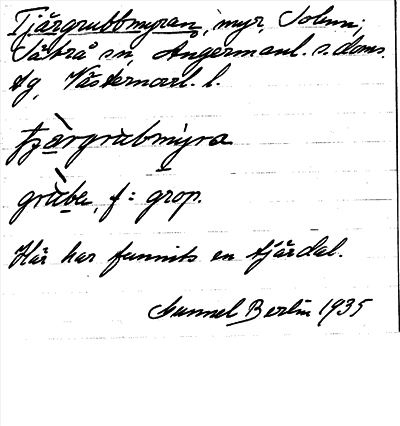 Tjärgrubbmyran, myr, Solum;
Säbrå sn, Ångermanl. s. doms.
tg, Västernorrl. l.
tjärgrubmýra
grùba, f: grop.
Här har funnits en tjärdal.
Gunnel Berlin 1935